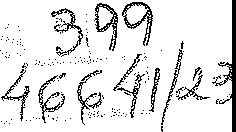 399
46641/23